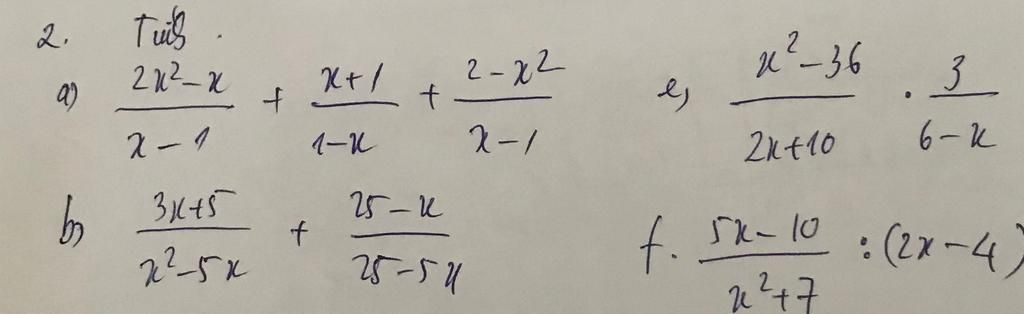 2. Tính.
a) (2x²-x)/(x-1) + (x+1)/(1-x) + (2-x²)/(x-1)
e, (x²-36)/(2x+10) . 3/(6-x)
b) (3x+5)/(x²-5x) + (25-x)/(25-5x)
f. (5x-10)/(x²+7) : (2x-4)